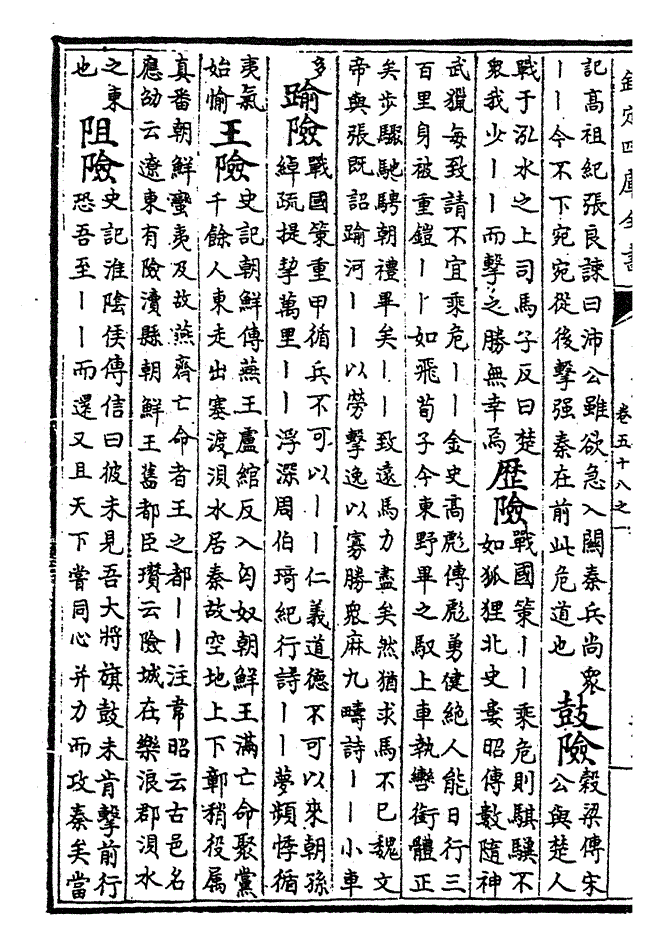 欽定四庫全書
卷五十八之一
記高祖紀張良諫曰沛公雖欲急入關秦兵尚衆
丨丨今不下宛宛從後擊强秦在前此危道也
鼓險
穀梁傳宋
公與楚人
戰于泓水之上司馬子反曰楚
衆我少丨丨而擊之勝無幸焉
歴險
戰國策丨丨乘危則騏驥不
如狐狸北史婁昭傳數隨神
武獵每致請不宜乘危丨丨金史高彪傳彪勇健絶人能日行三
百里身被重鎧丨丨如飛荀子今東野畢之馭上車執轡銜體正
矣步驟馳騁朝禮畢矣丨丨致遠馬力盡矣然猶求馬不已魏文
帝與張既詔踰河丨丨以勞擊逸以寡勝衆麻九疇詩丨丨小車
多
踰險
戰國策重甲循兵不可以丨丨仁義道德不可以來朝孫
綽疏提挈萬里丨丨浮深周伯琦紀行詩丨丨夢頻悸循
夷氣
始愉
王險
史記朝鮮傳燕王盧綰反入匈奴朝鮮王滿亡命聚黨
千餘人東走出塞渡浿水居秦故空地上下鄣稍役属
真番朝鮮蠻夷及故燕齊亡命者王之都丨丨注韋昭云古邑名
應劭云遼東有險瀆縣朝鮮王舊都臣瓚云險城在樂浪郡浿水
之東
也
阻險
史記淮陰侯傳信曰彼未見吾大將旗鼓未肯擊前行
恐吾至丨丨而還又且天下嘗同心并力而攻秦矣當